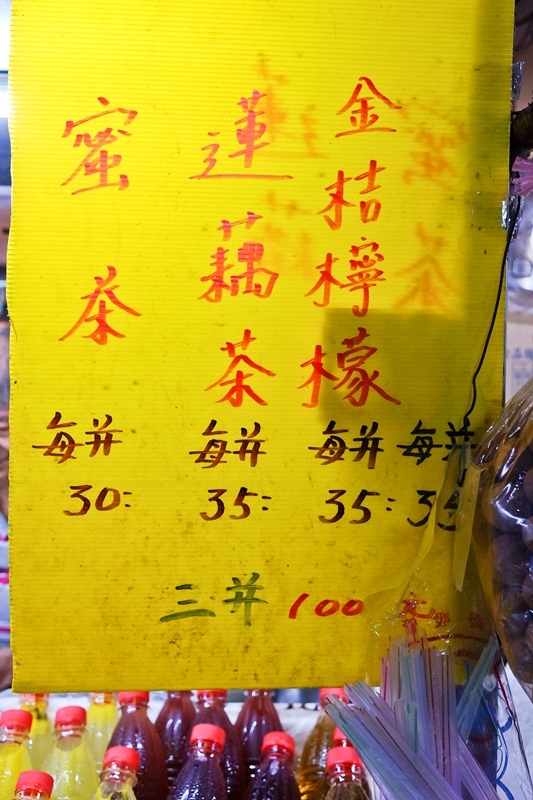 金桔檸檬
蓮藕茶
蜜茶
每并 每并 每并 每并
30: 35: 35: 35
三并 100